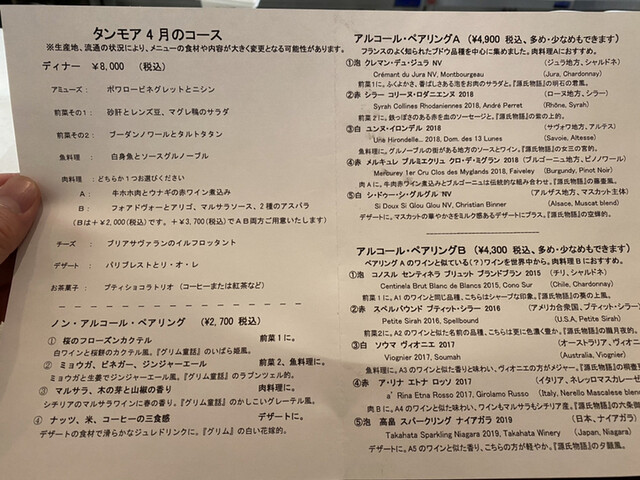 タンモア４月のコース
※生産地、流通の状況により、メニューの食材や内容が大きく変更となる可能性があります。
ディナー ￥8,000 （税込）
アミューズ： ポワロービネグレットとニシン
前菜その１： 砂肝とレンズ豆、マグレ鴨のサラダ
前菜その2： ブーダンノワールとタルトタタン
魚料理 ： 白身魚とソースグルノーブル
肉料理 ：どちらか１つお選びください
A ： 牛ホホ肉とウナギの赤ワイン煮込み
B ： フォアドヴォーとアリゴ、マルサラソース、２種のアスパラ
（Bは＋￥2,000（税込）です。＋￥3,700（税込）でAB両方ご用意いたします）
チーズ ： ブリアサヴァランのイルフロッタント
デザート ： パリブレストとリ・オ・レ
お茶菓子 ： プティショコラトリオ （コーヒーまたは紅茶など）
ノン・アルコール・ペアリング （￥2,700 税込）
① 桜のフローズンカクテル 前菜１に。
白ワインと桜餅のカクテル風。『グリム童話』のいばら姫風。
② ミョウガ、ビネガー、ジンジャーエール 前菜２、魚料理に。
ミョウガと生姜でジンジャーエール風。『グリム童話』のラプンツェル的。
③ マルサラ、木の芽と山椒の香り 肉料理に。
シチリアのマルサラワインに春の香り。『グリム童話』のかしこいグレーテル風。
④ ナッツ、米、コーヒーの三食感 デザートに。
デザートの食材で滑らかなジュレドリンクに。『グリム』の白い花嫁的。
アルコール・ペアリングA （￥4,900 税込、多め・少なめもできます）
フランスのよく知られたブドウ品種を中心に集めました。肉料理Aにおすすめ。
①泡 クレマン・デュ・ジュラ NV （ジュラ地方、シャルドネ）
Crémant du Jura NV, Montbourgeau (Jura, Chardonnay)
前菜１に。ふくよかさ、香ばしさある泡をお肉のサラダと。『源氏物語』の明石の君風。
②赤 シラー コリーヌ・ロダニエンヌ 2018 （ローヌ地方、シラー）
Syrah Collines Rhodaniennes 2018, André Perret (Rhône, Syrah)
前菜２に。鉄っぽさのある赤を血のソーセージと。『源氏物語』の紫の上的。
③白 ユンヌ・イロンデル 2018 （サヴォワ地方、アルテス）
Une Hirondelle... 2018, Dom. des 13 Lunes (Savoie, Altesse)
魚料理に。グルノーブルの街がある地方のソースとワイン。『源氏物語』の女三の宮的。
④赤 メルキュレ プルミエクリュ クロ・デ・ミグラン 2018 （ブルゴーニュ地方、ピノノワール）
Mercurey 1er Cru Clos des Myglands 2018, Faiveley (Burgundy, Pinot Noir)
肉Aに。牛肉赤ワイン煮込みとブルゴーニュは伝統的な組み合わせ。『源氏物語』の薫香風。
⑤白 シ・ドゥー・シ・グルグル NV （アルザス地方、マスカット主体）
Si Doux Si Glou Glou NV, Christian Binner (Alsace, Muscat blend)
デザートに。マスカットの華やかさをミルク感あるデザートにプラス。『源氏物語』の空蝉的。
アルコール・ペアリングB （￥4,300 税込、多め・少なめもできます）
ペアリングAのワインと似ている（？）ワインを世界中から。肉料理Bにおすすめ。
①泡 コノスル センティネラ ブリュット ブランドブラン 2015 （チリ、シャルドネ）
Centinela Brut Blanc de Blancs 2015, Cono Sur (Chile, Chardonnay)
前菜１に。A１のワインと同じ品種、こちらはシャープな印象。『源氏物語』の葵の上風。
②赤 スペルバウンド プティット・シラー 2016 （アメリカ合衆国、プティット・シラー）
Petite Sirah 2016, Spellbound (U.S.A, Petite Sirah)
前菜2に。A2のワインと似た名前の品種、こちらは更に色濃く豊か。『源氏物語』の朧月夜的。
③白 ソウマ ヴィオニエ 2017 （オーストラリア、ヴィオニ
Viognier 2017, Soumah (Australia, Viognier)
魚料理に。A3のワインと似た香りと味わい、ヴィオニエの方がメジャー。『源氏物語』の桐壺
④赤 ア・リナ エトナ ロッソ 2017 （イタリア、ネレッロマスカレーゼ
a' Rina Etna Rosso 2017, Girolamo Russo (Italy, Nerello Mascalese blend
肉Bに。A4のワインと似た味わい、ワインもマルサラもシチリア産。『源氏物語』の六条御
⑤泡 高畠 スパークリング ナイアガラ 2019 （日本、ナイアガラ）
Takahata Sparkling Niagara 2019, Takahata Winery (Japan, Niagara)
デザートに。A5のワインと似た香り、こちらの方が軽やか。『源氏物語』の夕顔風。